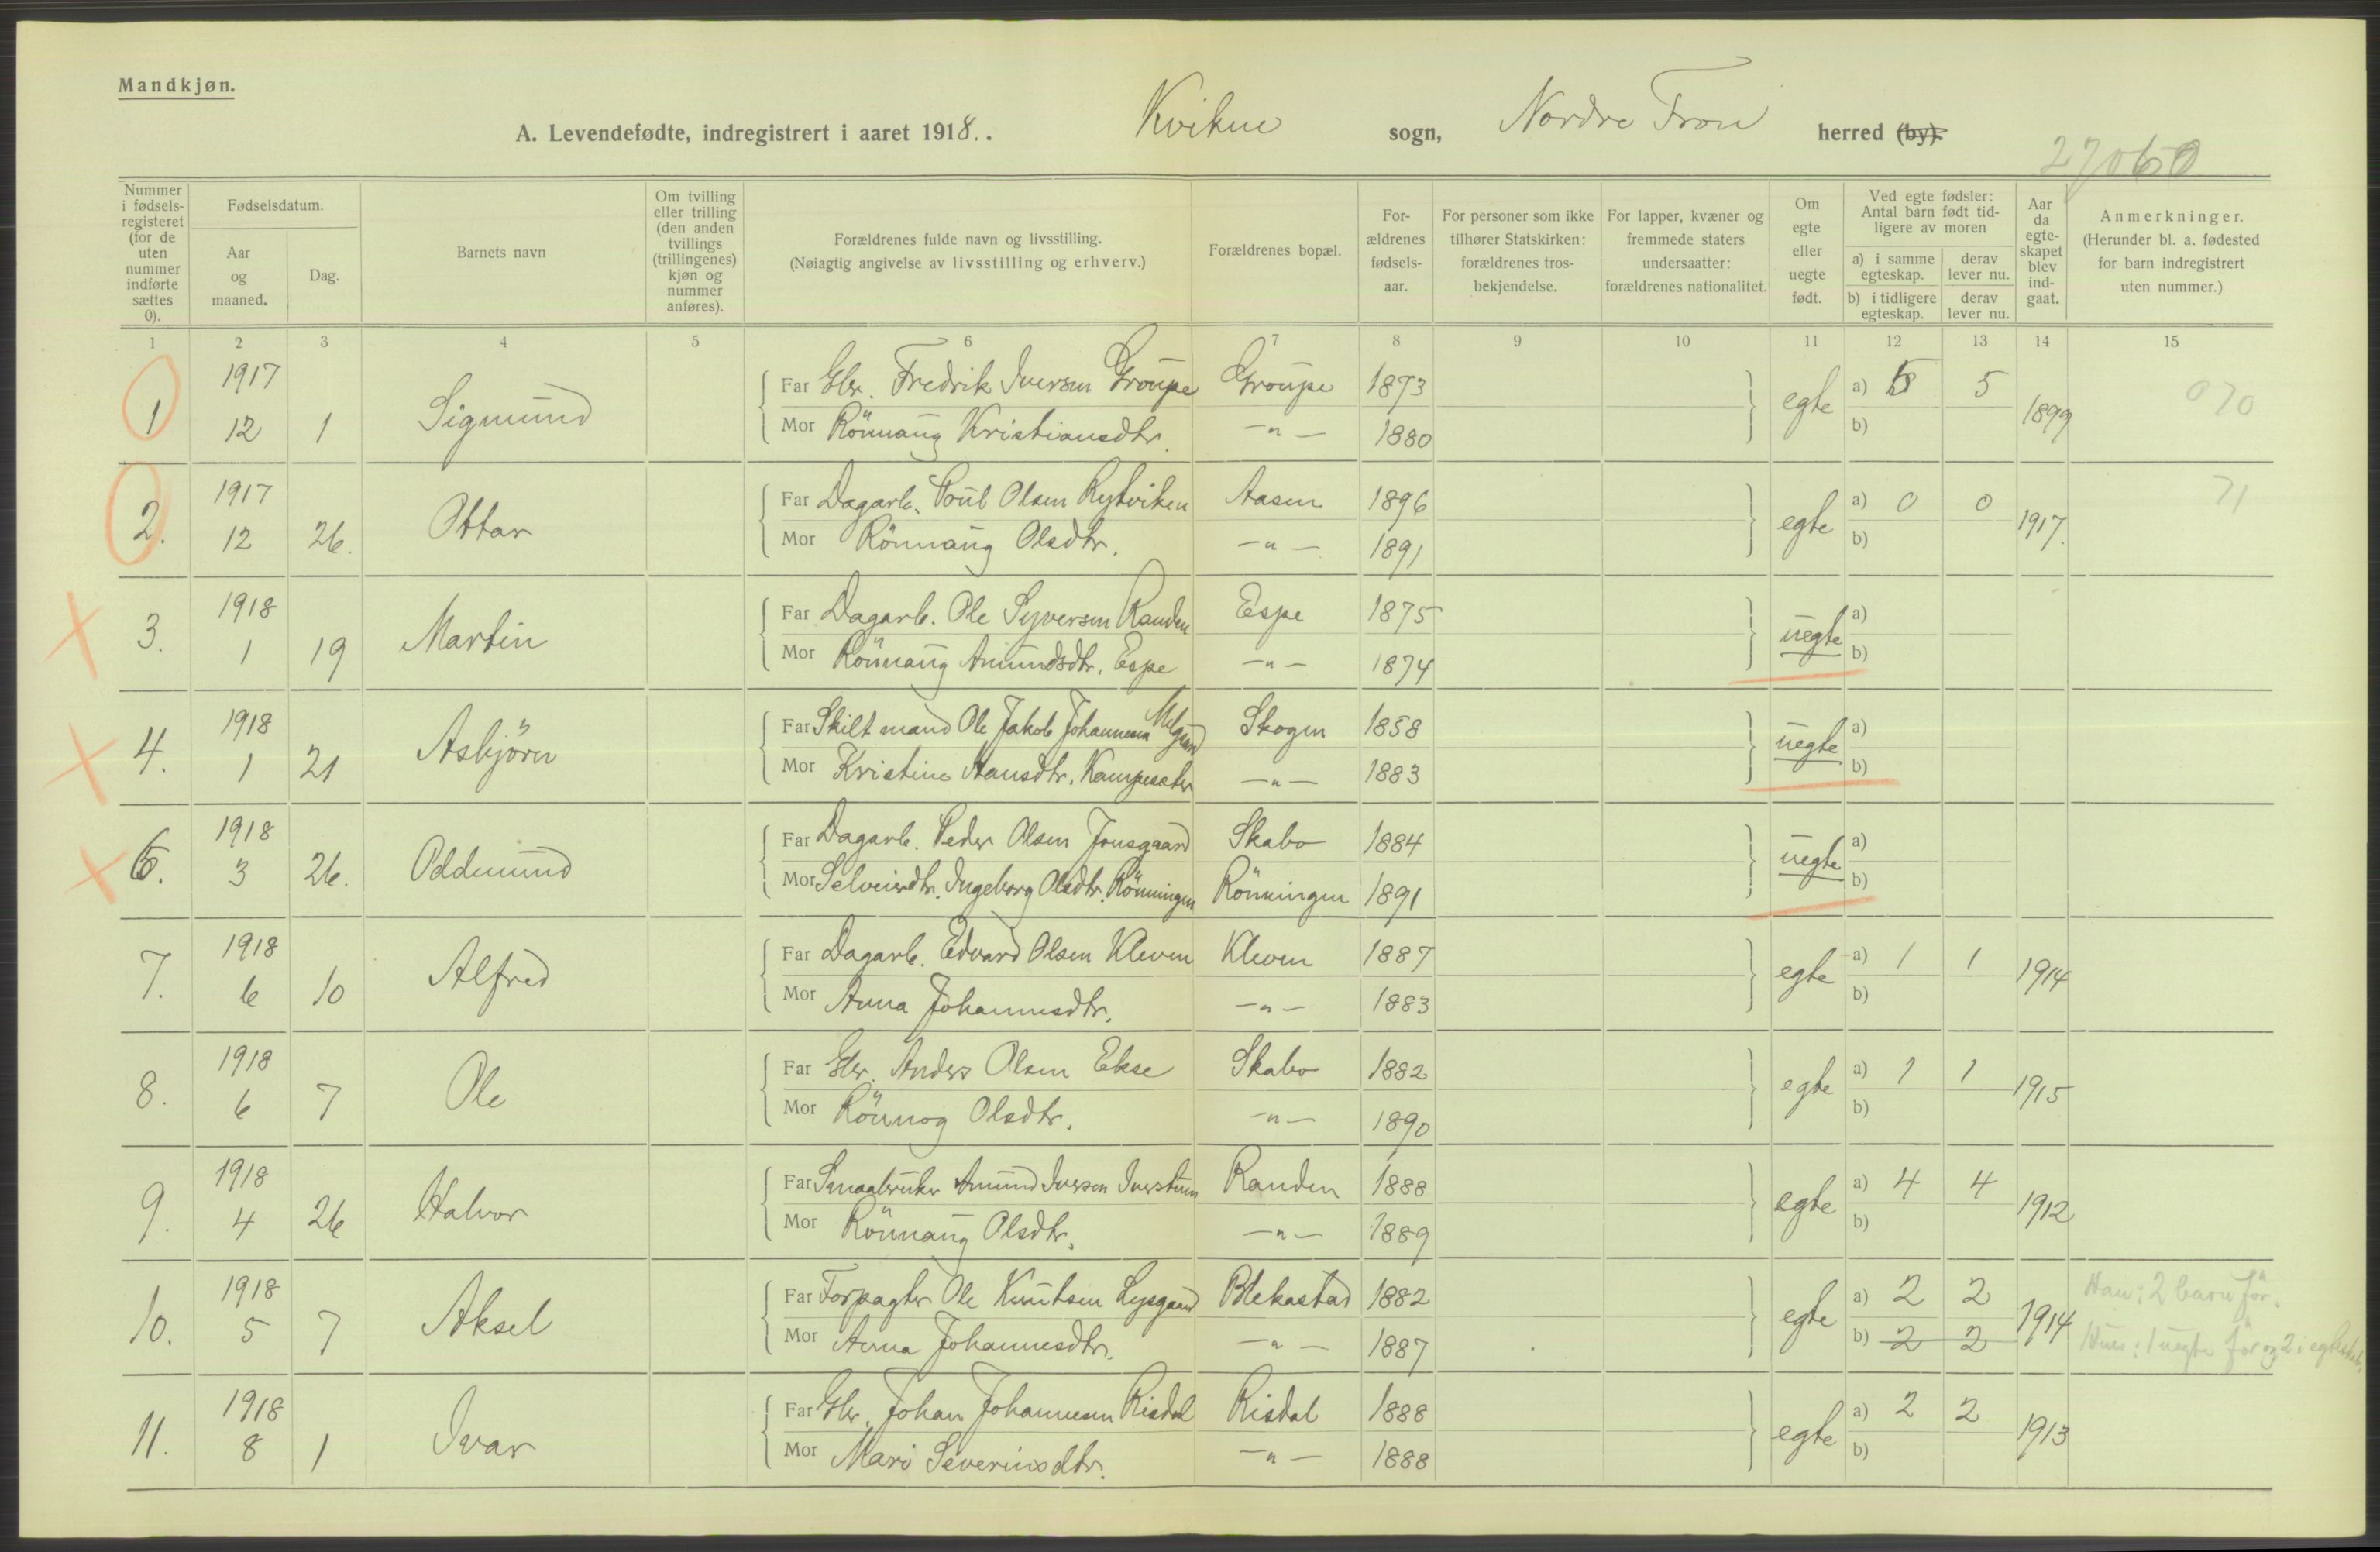 Mandkjøn.
A. Levendefødte, indregistrert i aaret 1918. . Kvikne sogn, Nordre Fron herred (by).
27060
Nummer i fødsels-registeret (for de uten nummer indførte sættes 0).
Fødselsdatum.
Aar og maaned.
Dag.
Barnets navn
Om tvilling eller trilling (den anden tvillings (trillingenes) kjøn og nummer anføres).
Forældrenes fulde navn og livsstilling.
(Nøiagtig angivelse av livsstilling og erhverv.)
Forældrenes bopæl.
For-ældrenes fødsels-aar.
For personer som ikke tilhører Statskirken: forældrenes tros-bekjendelse.
For lapper, kvæner og fremmede staters undersaatter: forældrenes nationalitet.
Om egte eller uegte født.
Ved egte fødsler: Antal barn født tid-ligere av moren
a) i samme egteskap.
derav lever nu.
b) i tidligere egteskap.
derav lever nu.
Aar da egte-skapet blev ind-gaat.
Anmerkninger.
(Herunder bl. a. fødested for barn indregistrert uten nummer.)
1 2 3 4 5 6 7 8 9 10 11 12 13 14 15
1 1917 12 1 Sigmund
Far Gbr. Fredrik Iversen Groupe Groupe 1873
Mor Rönnaug Kristiansdtr. —"— 1880
egte a) 5 5 b) 1899 070
2. 1917 12 26. Ottar
Far Dagarb. Poul Olsen Rytviken Aasen 1896
Mor Rönnaug Olsdtr. —"— 1891
egte a) 0 0 b) 1917. 71
3. 1918 1 19 Martin
Far Dagarb. Ole Syversen Randen Espe 1875
Mor Rönnaug Amundsdtr. Espe —"— 1874
uegte a) b)
4. 1918 1 21 Asbjörn
Far Skiltmand Ole Jakob Johannesen Melgaard Skogen 1858
Mor Kristine Hansdtr. Kampeseter —"— 1883
uegte a) b)
6. 1918 3 26. Oddmund
Far Dagarb. Peder Olsen Jonsgaard Skabo 1884
Mor Selveierdtr. Ingeborg Olsdtr. Rönningen Rönningen 1891
uegte a) b)
7. 1918 6 10 Alfred
Far Dagarb. Edvard Olsen Kleven Kleven 1887
Mor Anna Johannesdtr. —"— 1883
egte a) 1 1 b) 1914
8. 1918 6 7 Ole
Far Gbr. Anders Olsen Ekse Skabo 1882
Mor Rönnog Olsdtr. —"— 1890
egte a) 1 1 b) 1915
9. 1918 4 26 Halvor
Far Smaabruker Amund Iversen Iverstuen Randen 1888
Mor Rönnaug Olsdtr. —"— 1889
egte a) 4 4 b) 1912
10. 1918 5 7 Aksel
Far Forpagter Ole Knutsen Lysgaard Blekastad 1882
Mor Anna Johannesdtr. —"— 1887
egte a) 2 2 b) 2 2 1914
Han: 2 barn för.
Hun: 1 uegte för og 2 i egtesk.
11. 1918 8 1 Ivar
Far Gbr. Johan Johannesen Risdal Risdal 1888
Mor Mari Severinsdtr. —"— 1888
egte a) 2 2 b) 1913